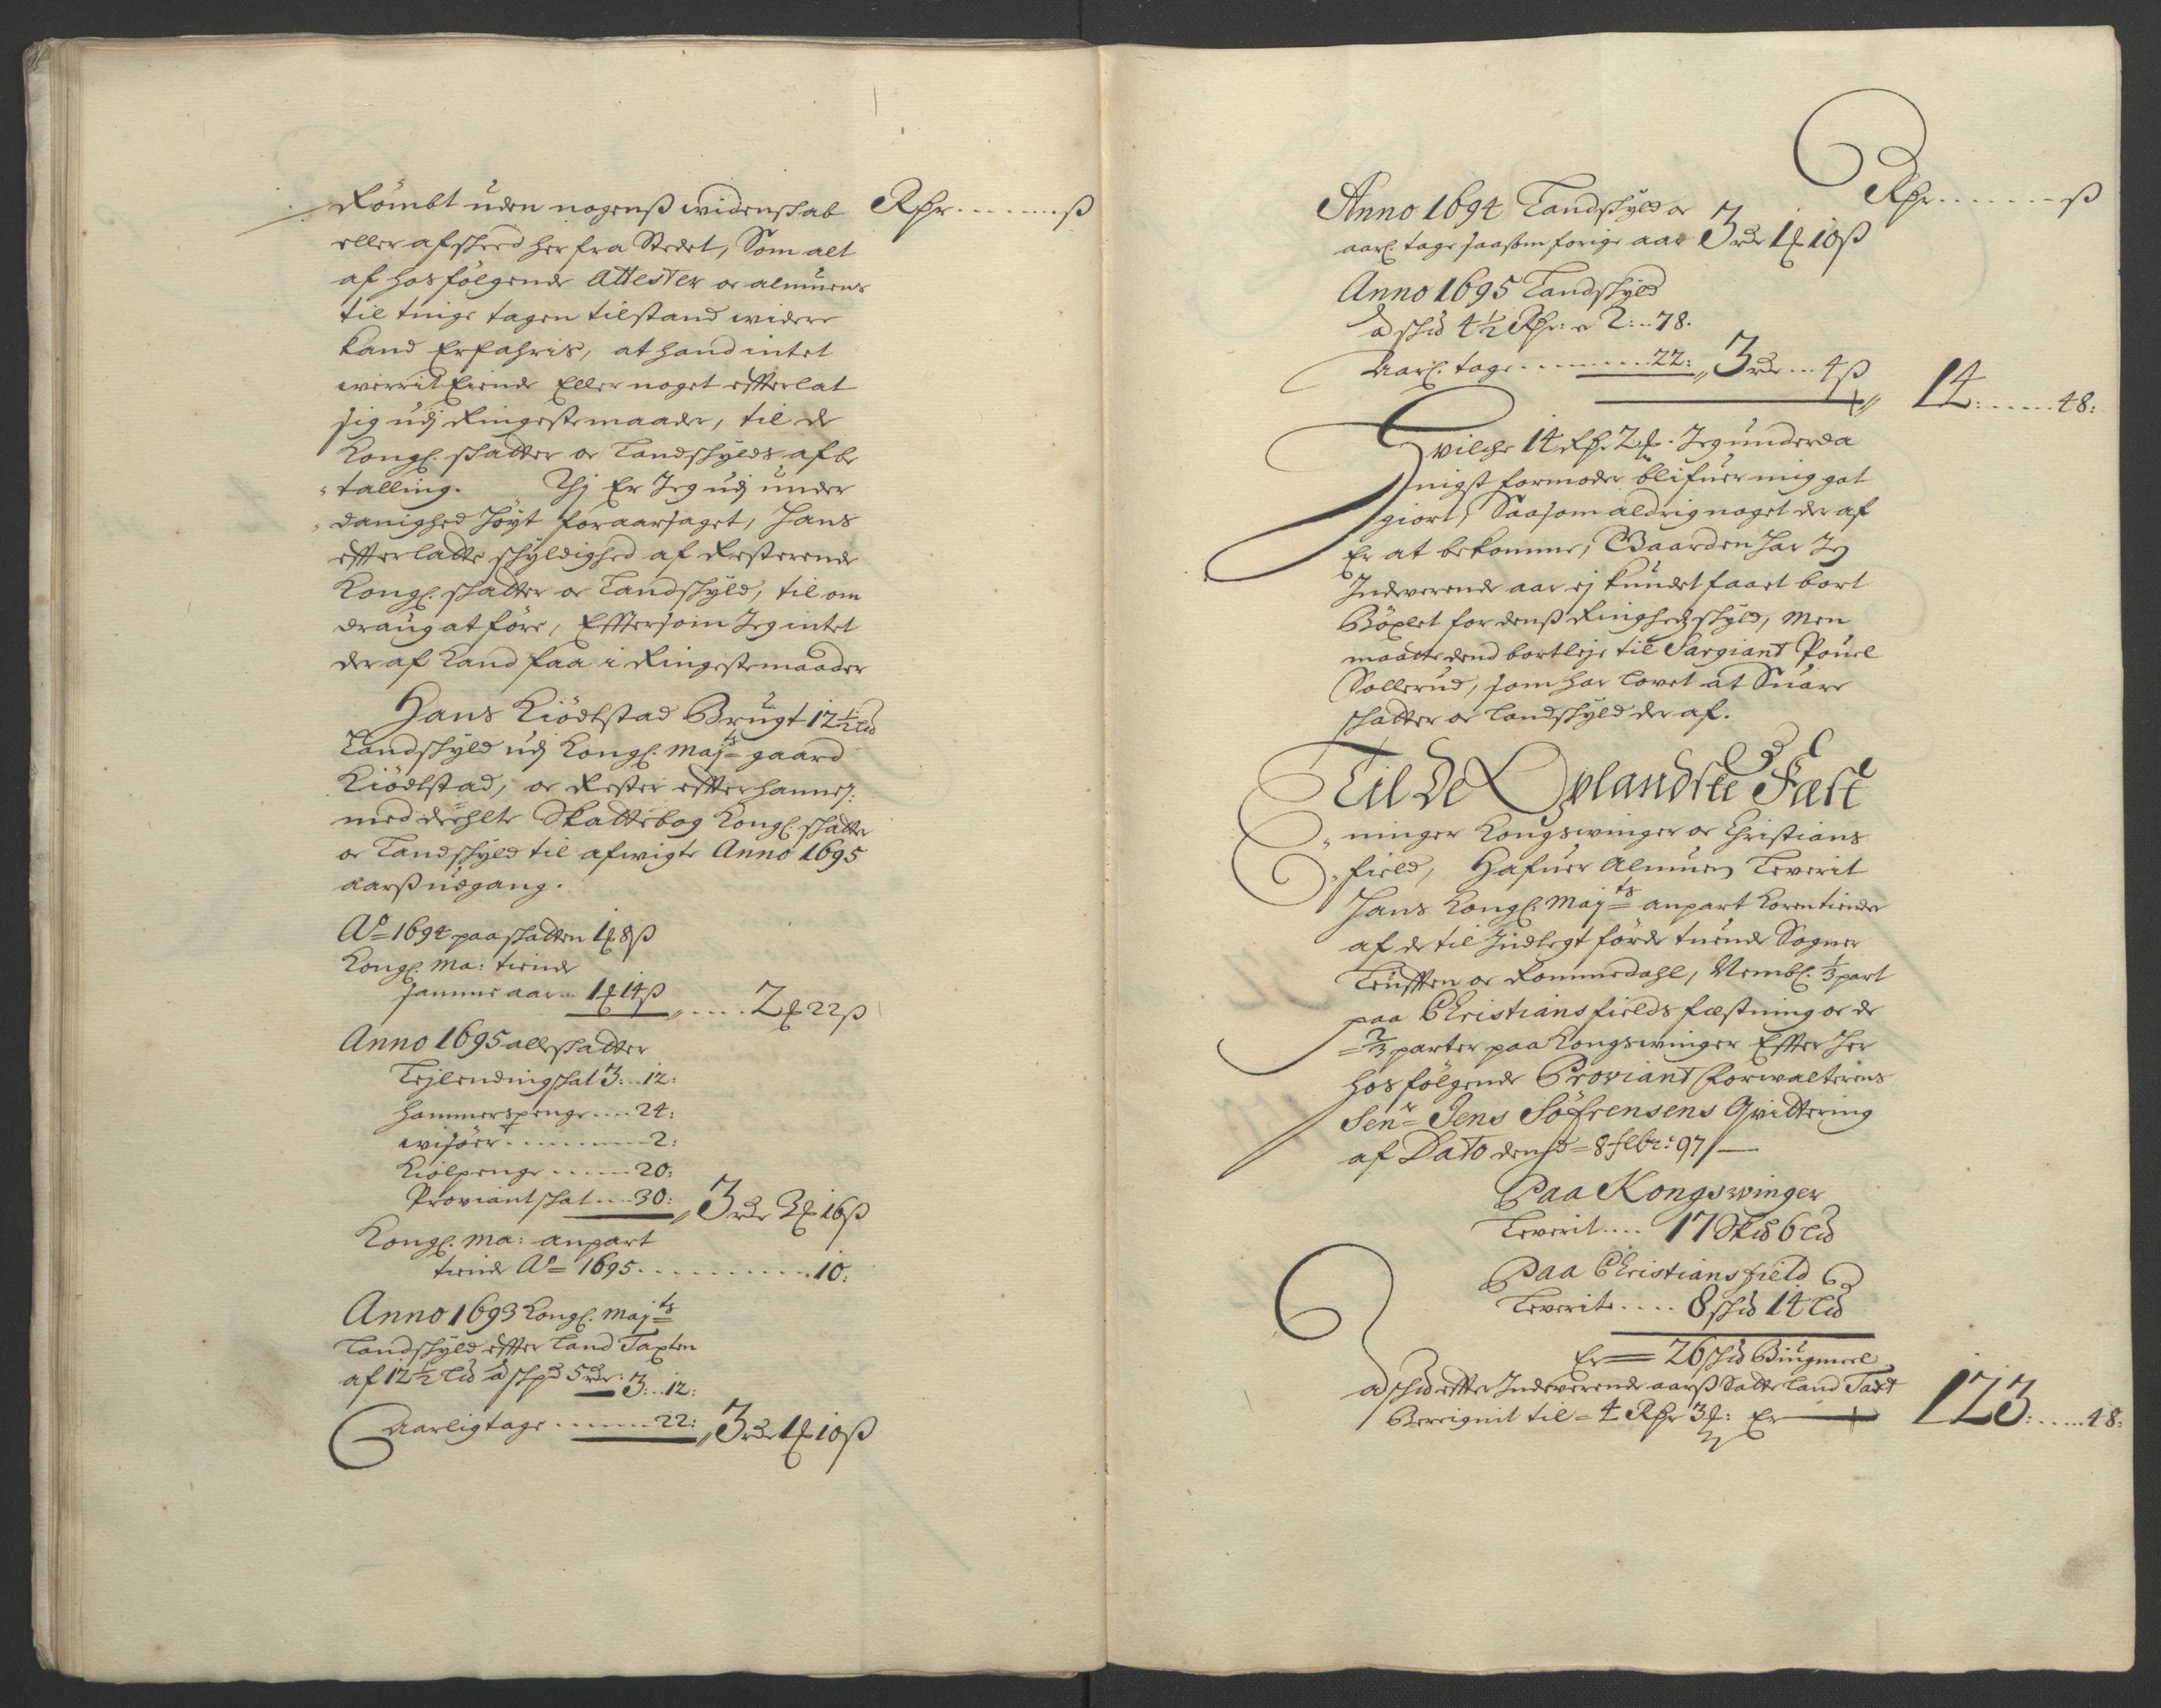 Rømbt uden nogenß widenskab Rdr ß
eller afskeed her fra Stedet, Som alt
af hosfølgende Attester oc almuens
til tinge tagen tilstand widere
kand Erfahris, at hand intet
werrit Eiende Eller noget efterlat
sig udj Ringeste maade, til de
Kongl. skatter oc Landskylds afbe
talling. Thj Er Jeg udj under
danighed høyt foraarsaget, hans
efterladte skyldighed af Resterende
Kongl. skatter oc Landskyld, til om
draug at føre, Efftersom Jeg intet
der af kand faa i Ringeste maader
Hans Kiödtstad Brugt 12½ Lid
Landskyld udj Kongl. Majts gaard
Kiödtstad, oc Rester efter hannes:
med deehlte Skattebog Kongl. skatter
oc Landskyld til afwigte Anno 1695
aarß udgang.
Ao 1694 paa skatten 1 ƒ 8 ß
Kongl. Ma: tiende
samme aar .. 1 ƒ 14 ß .... 2 ƒ 22 ß
Anno 1695 alle skatter
Lejlendingskat 3 .. 12:
hammerspenge .... 24:
wisøer ........ 2:
Kiolpenge ...... 20:
Proviantskat .... 30: 3 rdr 3 ƒ 16 ß
Kongl. Ma: anpart
tiende Ao 1695 ........... 10:
Anno 1693 Kongl. Majts
Landskyld effter Land Taxten
af 12½ Lid â skpd 5 rdr: 3 .. 12:
Aarlig tage ....... 22: 3 rdr 1 ƒ 10 ß
Rdr ....... ß
Anno 1694 Landskyld oc
aarl. tage saasom forige aar 3 rdr 1 ƒ 10 ß
Anno 1695 Landskyld
â skid 4½ Rdr: er 2: .. 78.
Aarl. tage ......... 22: 3 rdr ... 4 ß
14: ...... 48:
Hvilche 14 Rdr 2 ƒ. Jeg underda
nigst formoder blifuer mig got
giort, Saasom aldrig noget der af
Er at bekomme, Gaarden har Jeg
Indeverende aar ej kundet faaet bort
Bøxlet for denß Ringheds skyld, Men
maatte dend bortleje til Sargiant Pouel
Sollerud, som har lovet at Suare
skatter oc landskyld der af.
Til De Oplandske Fæst
ninger Kongswinger oc Christians
field, Hafuer Almuen Leverit
Hans Kongl. Majts anpart Korentiende
af de til Indlegt førde tuende Sogner
Leufften oc Rommedahl, Nembl. 1/3 part
paa Christiansfields fæstning oc de
2/3 parter paa Kongswinger Effter her
hosfølgende Proviant forwalterens
Senr Jens Söfrensens Qvittering
af Dato dend 8 febr: 97
Paa Kongswinger
Leverit .... 17 Skid 6 Lid
Paa Christiansfield
Leverit .... 8 skid 14 Lid
Er 26 skid Biugmeel
â skid effter Indeverende aarß Satte Land Taxt
Beregnit til 4 Rdr 3 ƒ: Er 123: ..... 48: